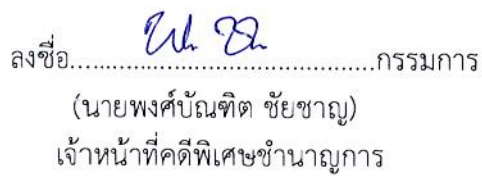 ลงชื่อ..........................................กรรมการ
(นายพงศ์บัณฑิต ชัยชาญ)
เจ้าหน้าที่คดีพิเศษชำนาญการ